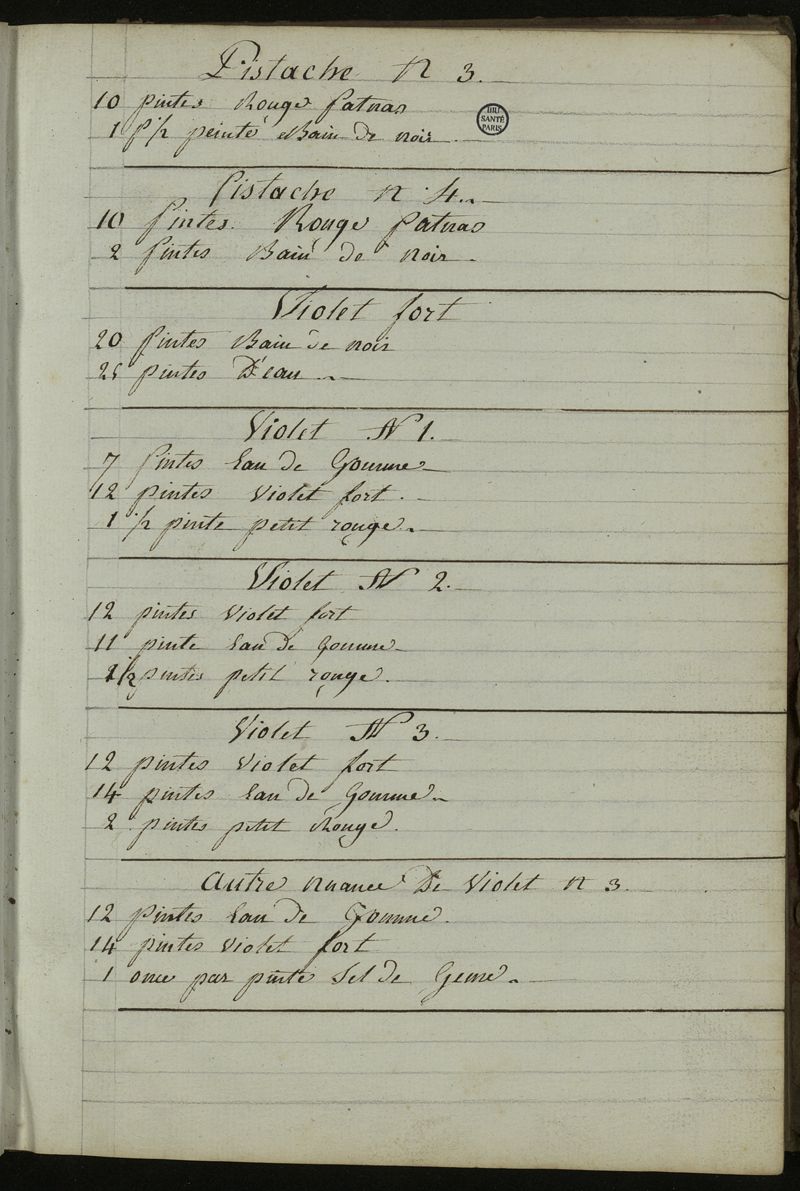 Pistache N 3.
10 pintes Rouge Patnas
BIU SANTÉ PARIS
1 1/2 peinte Bain De noir.
Pistache N 4.
10 Pintes Rouge Patnas
2 Pintes Bain de Noir.
Violet fort
20 Pintes Bain de noir
25 pintes D'eau
Violet N 1.
7 Pintes Eau De Gomme
12 pintes Violet fort.
1 1/2 pinte petit rouge.
Violet N 2.
12 pintes Violet fort
11 pinte Eau De Gomme
1 1/2 pintes petit rouge.
Violet N 3.
12 pintes Violet fort
14 pintes Eau De Gomme
2 pintes petit Rouge.
Autre Nuance De Violet N 3.
12 pintes Eau De Gomme.
14 pintes Violet fort
1 once par pinte Sel De Geme.